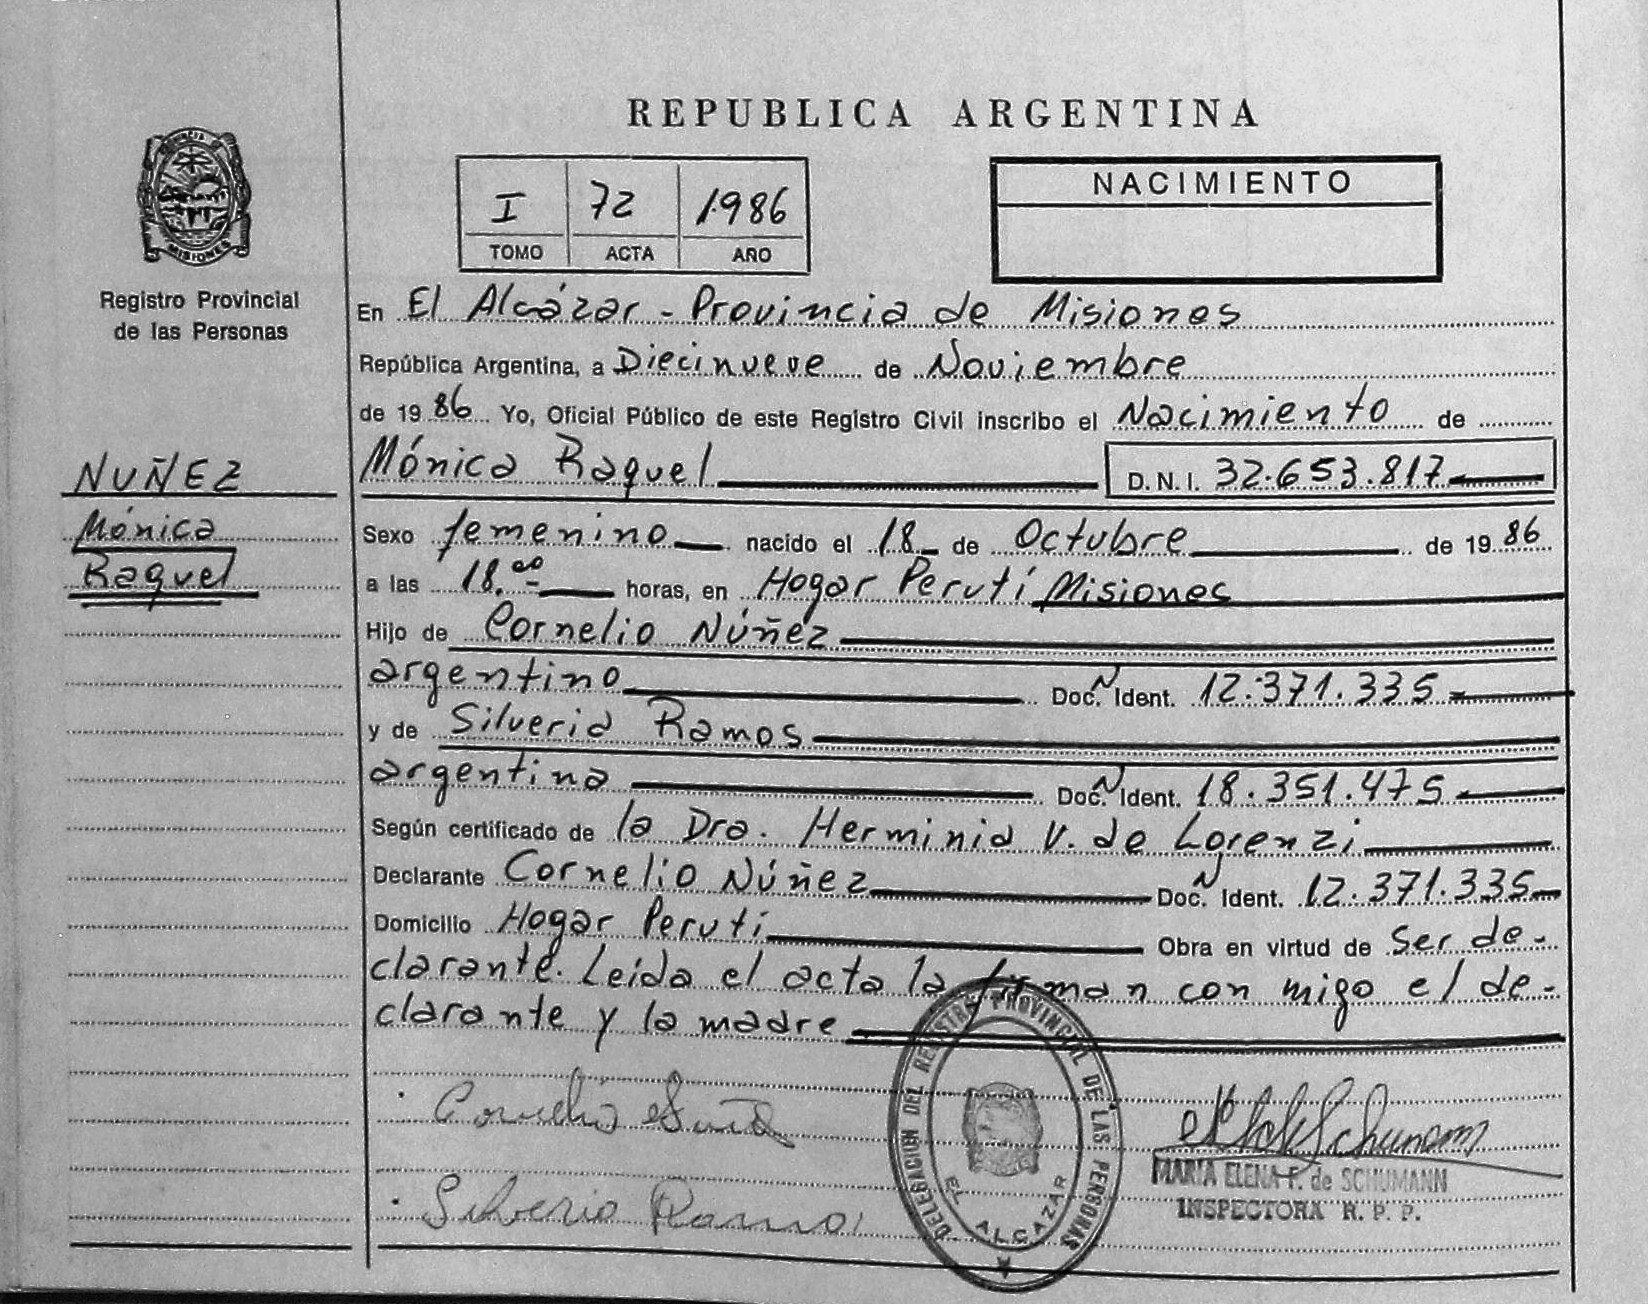 REPUBLICA ARGENTINA
MISIONES
Registro Provincial
de las Personas
I 72 1986
TOMO ACTA AÑO
NACIMIENTO
En El Alcázar - Provincia de Misiones
República Argentina, a Diecinueve de Noviembre
de 19 86 Yo, Oficial Público de este Registro Civil inscribo el Nacimiento de
NUÑEZ
Mónica
Raquel
Mónica Raquel D.N.I. 32.653.817
Sexo femenino nacido el 18 de Octubre de 19 86
a las 18.00 horas, en Hogar Perutí Misiones
Hijo de Cornelio Núñez
argentino Doc. N Ident. 12.371.335
y de Silveria Ramos
argentina Doc. N Ident. 18.351.475
Según certificado de la Dra. Herminia V. de Lorenzi
Declarante Cornelio Núñez Doc. N Ident. 12.371.335
Domicilio Hogar Perutí Obra en virtud de ser de-
clarante. Leída el acta la firman con migo el de-
clarante y la madre
DELEGACION DEL REGISTRO PROVINCIAL DE LAS PERSONAS
EL ALCAZAR
MARIA ELENA F. de SCHUMANN
INSPECTORA R. P. P.
Silverio Ramos